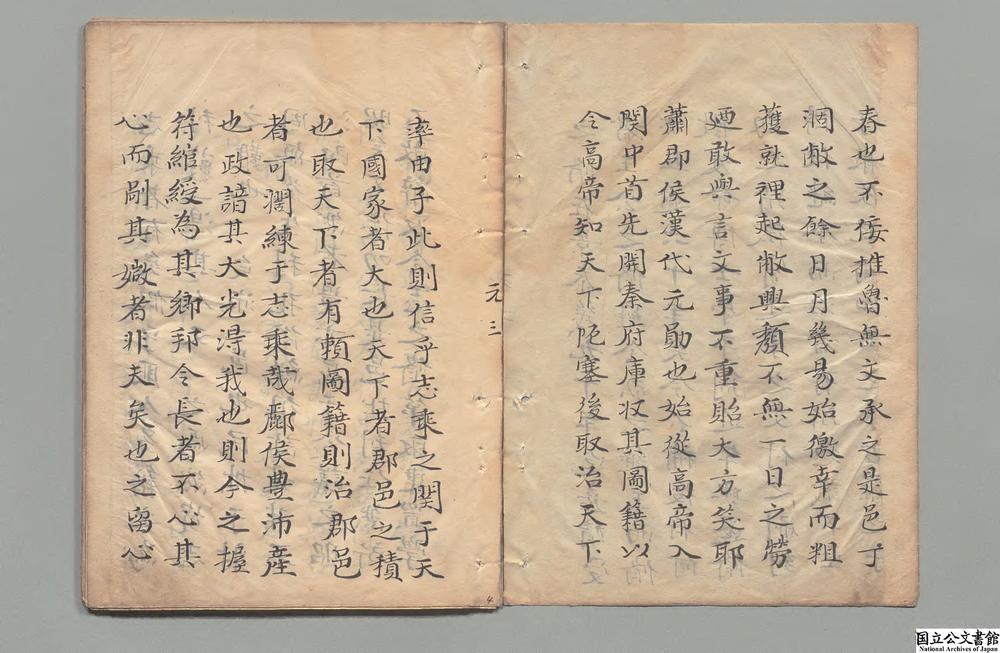 春也不佞推魯無文承之是邑于
凋敝之餘日月幾昜始徼幸而粗
獲就裡起敝興頽不無丁日之勞
廼敢與言文事不重貽大方笑耶
蕭郡侯漢代元勛也始從高帝入
関中首先開秦府庫収其圖籍以
令高帝知天下阨塞後取治天下
元三
率由子此則信乎志乘之関于天
下國家者大也天下者郡邑之積
也取天下者有頼圖籍則治郡邑
者可濶練于志乘哉酇侯豊沛産
也政諳其大光淂我也則今之握
符綰綬為其鄉邦令長者不心其
心而剮其媺者非夫矣也之畱心
4
国立公文書館
National Archives of Japan